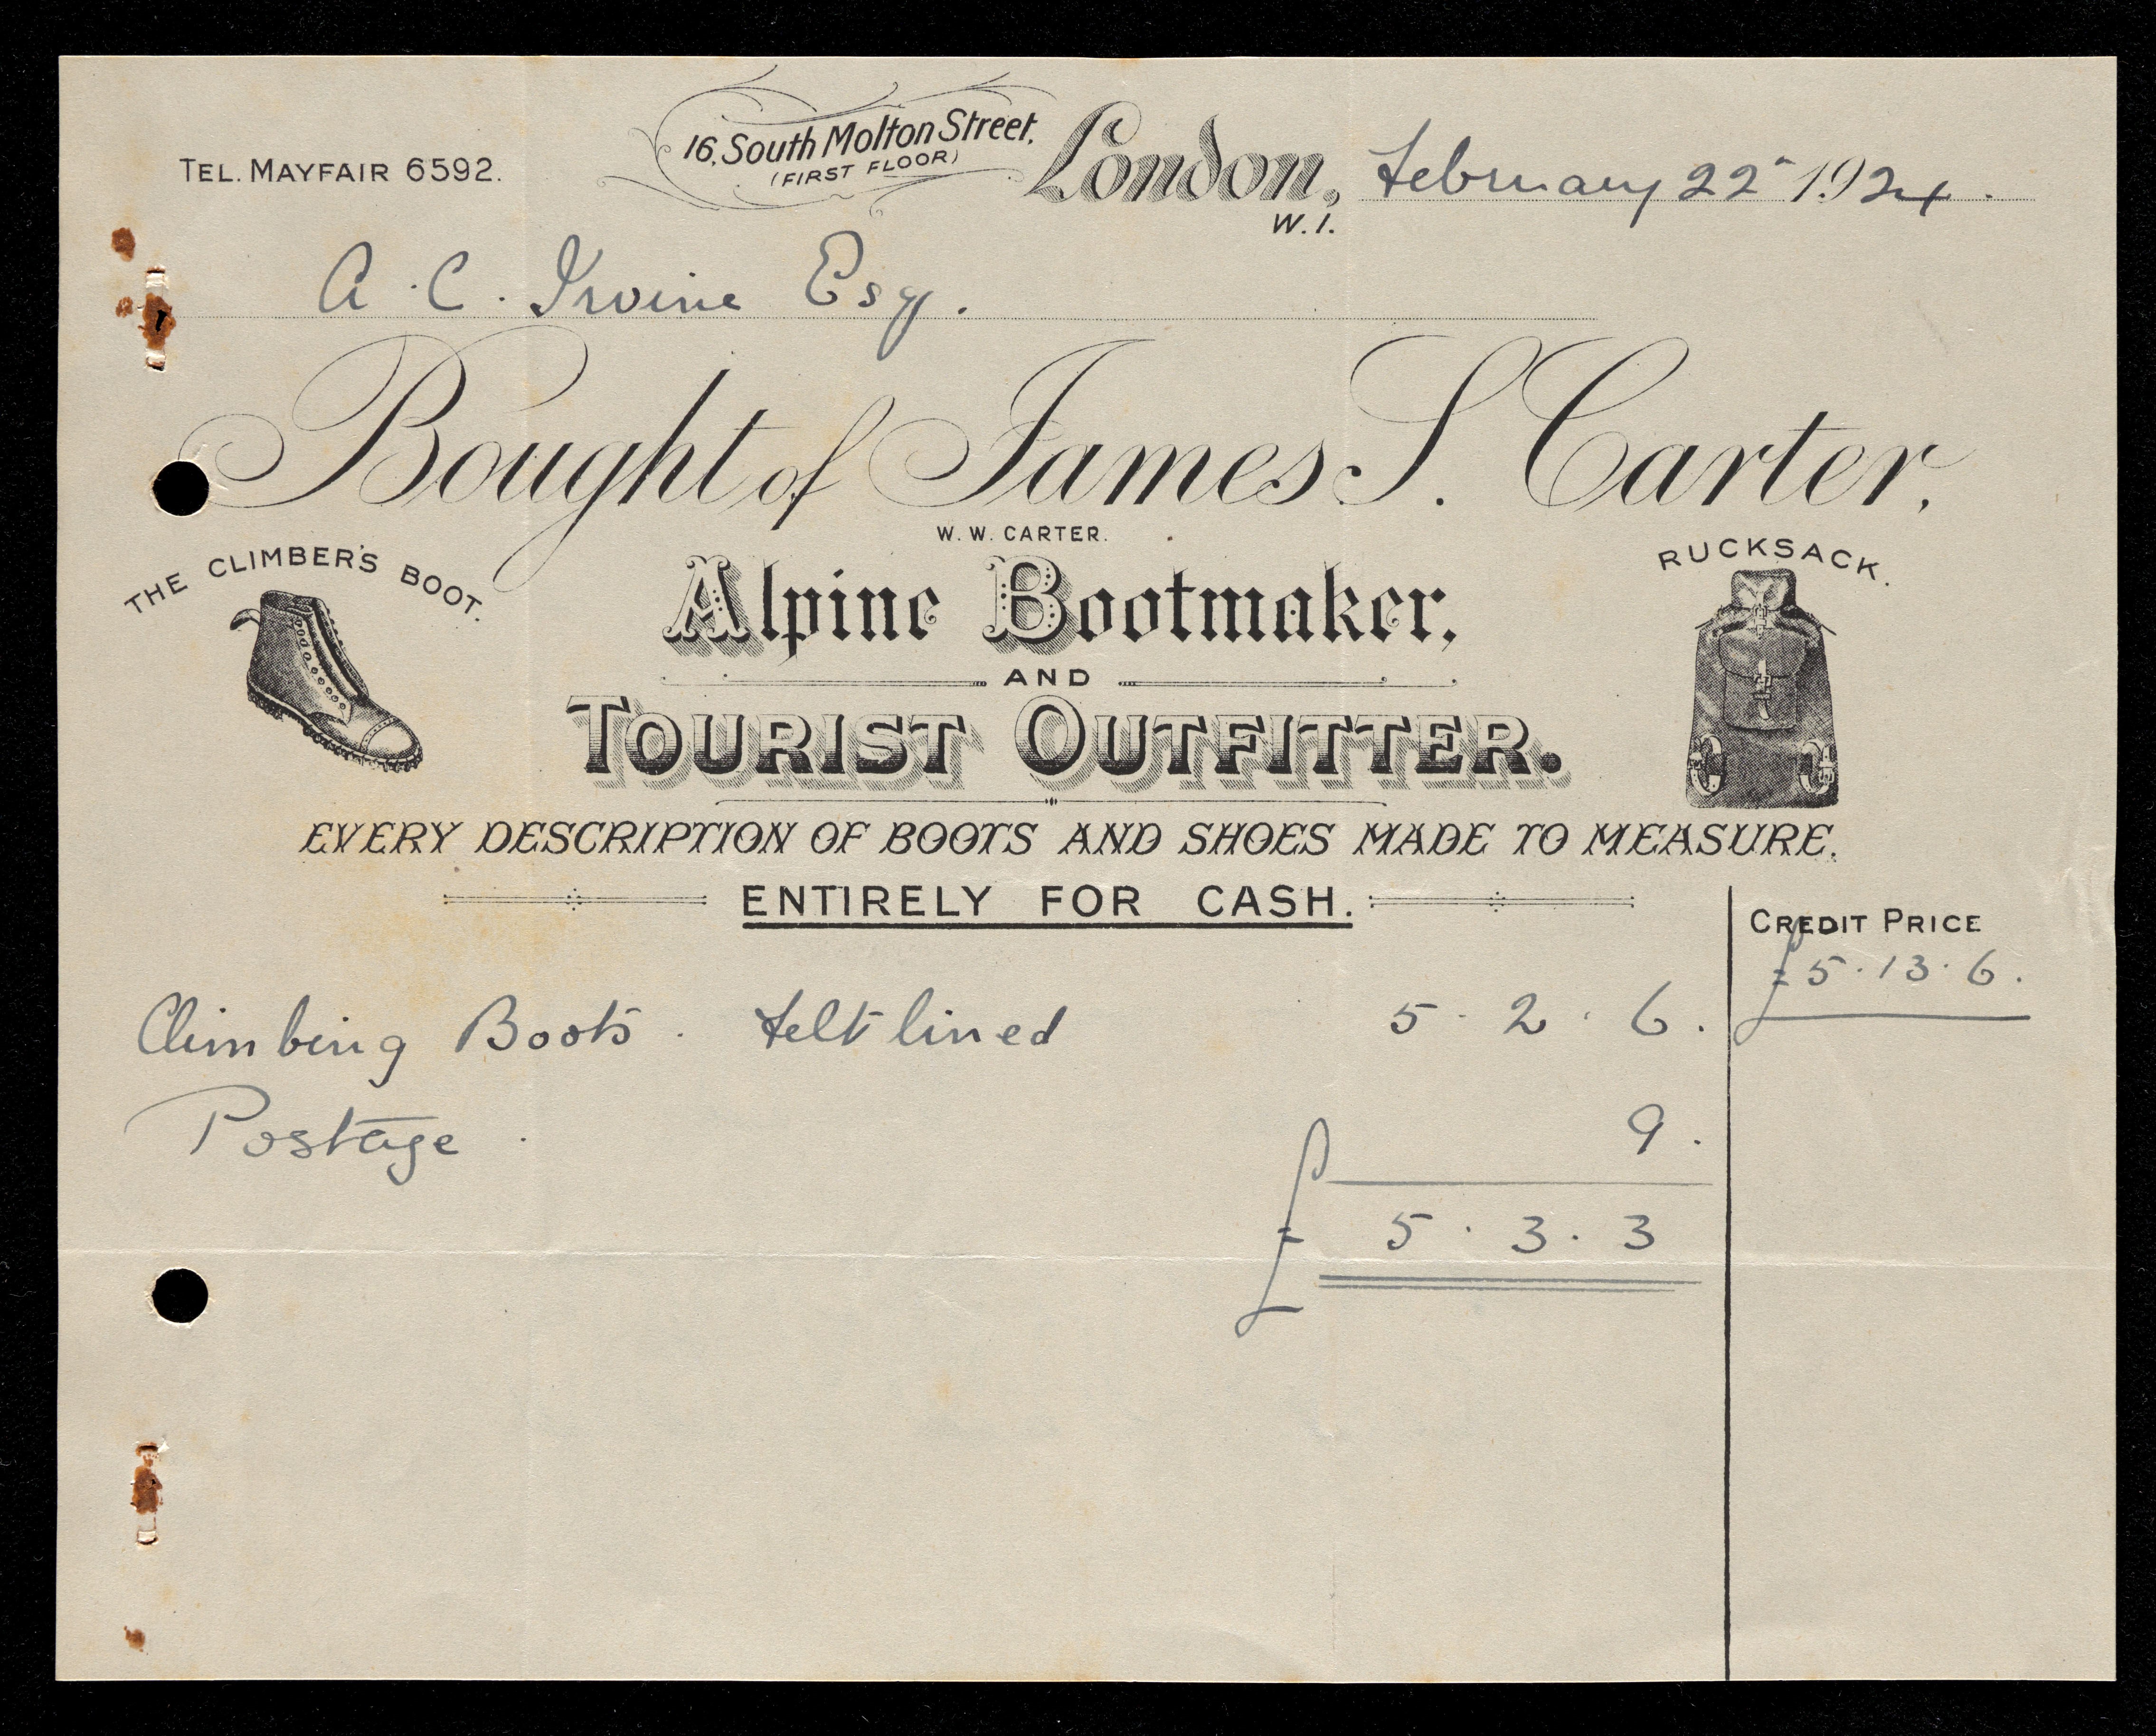 TEL. MAYFAIR 6592.
16, South Molton Street,
(FIRST FLOOR)
London,
W.1.
February 22nd 1924.
A. C. Irvine Esq.
Bought of James S. Carter,
W. W. CARTER.
THE CLIMBER'S BOOT.
RUCKSACK.
Alpine Bootmaker,
AND
TOURIST OUTFITTER.
EVERY DESCRIPTION OF BOOTS AND SHOES MADE TO MEASURE.
ENTIRELY FOR CASH.
CREDIT PRICE
£5.13.6.
Climbing Boots. felt lined 5.2.6.
Postage. 9.
£ 5.3.3